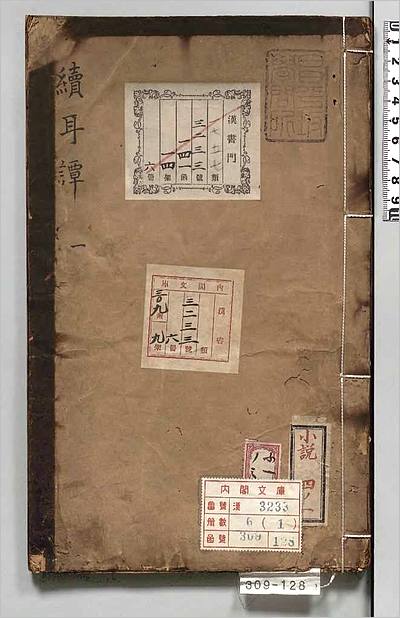 續耳譚
一
漢書門
三二三三
類
號
四
函
一四
架
六
冊
內閣文庫
漢書
三二三三
類
號
六
冊
三〇九
函
九
架
小説
四ノ一
内閣文庫
番號 漢 3233
冊數 6 (1)
函號 309 128
309-128
1 2 3 4 5 6 7 8 9